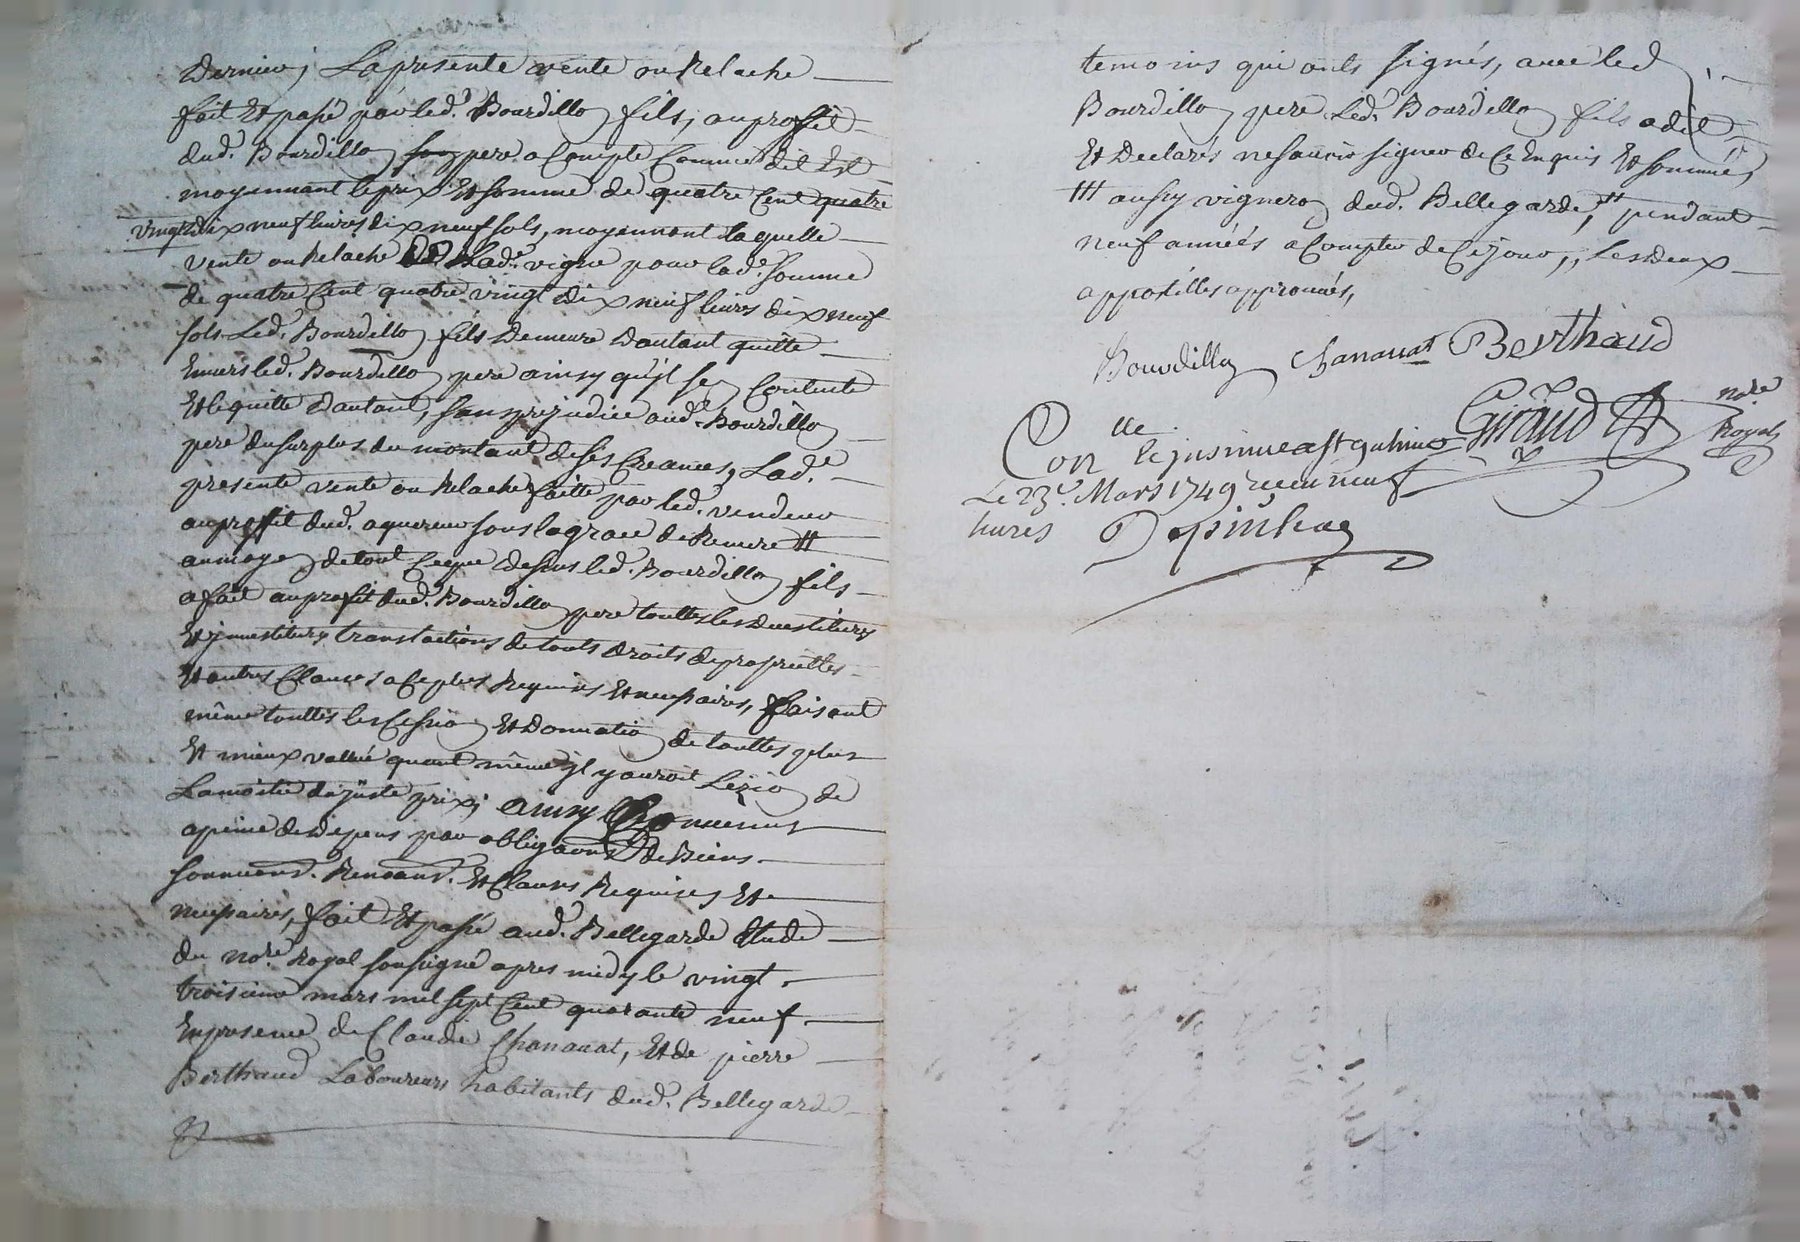 Dernier, La presente vente ou Relache
fait Et passé par led. Bourdillon fils, au profit
dud. Bourdillon son pere a Compte Comme dit Est
moyennant le prix Et somme de quatre Cent quatre
vingt dix neuf livres dix neuf sols, moyennant laquelle
vente ou Relache de lade. vigne pour lade. somme
de quatre Cent quatre vingt dix neuf livres dix neuf
sols Led. Bourdillon fils Demeure Dautant quitte
Envers led. Bourdillon pere ainsy qu'jl sen Contente
Et le quitte Dautant, sans prejudice aud. Bourdillon
pere du surplus du montant de ses Creances, Lade.
presente vente ou Relache faitte par led. vendeur
au profit dud. aquereur sous la grace de Remere ttt
au moyen de tout Ceque Dessus led. Bourdillon fils
a fait au profit dud. Bourdillon pere touttes les Devestitures
Et jnvestitures translactions de touts droits de proprietes
Et autres Clauses a Ce plus Requises Et necessaires, faisant
même touttes les Cession Et Donnation de touttes plus
Et mieux vallue quant même jl y auroit Lezion de
La moitié du juste prix, ainsy Convenus
a peine de Depens par obligaons de Biens
soumions. Renoaons. Et Clauses Requises Et
necessaires, fait Et passé aud. Bellegarde Etude
du nore. Royal soussigné apres midy le vingt
troisieme mars mil sept Cent quarante neuf
En presence de Claude Chanavat, Et de pierre
Berthaud Laboureurs habitants dud. Bellegarde
temoins qui onts signés, avec led
Bourdillon pere Led. Bourdillon fils a dit
Et Declarés ne sauoir signer de Ce Enquis Et sommé,
ttt aussy vigneron dud. Bellegarde, ttt pendant
neuf années a Compter de Ce jour,, Les deux
appostilles approuués,
Bourdillon Chanauat Berthaud
Giraud nore Royal
Conlle
Le 23e. Mars 1749 receu neuf
liures Depinhac